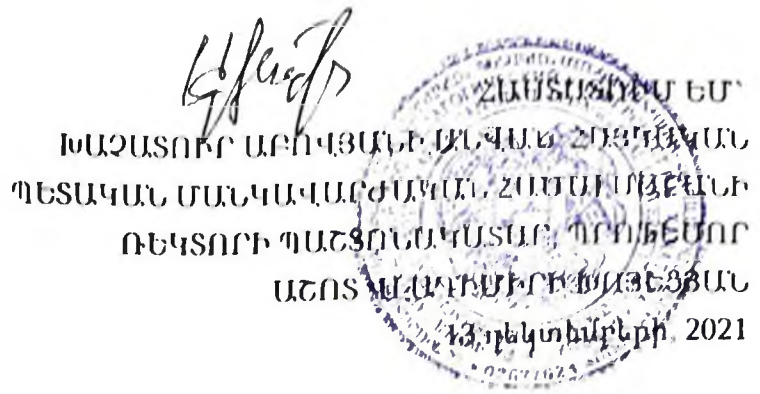 ՀԱՍՏԱՏՈՒՄ ԵՄ՝
ԽԱՉԱՏՈՒՐ ԱԲՈՎՅԱՆԻ ԱՆՎԱՆ ՀԱՅԿԱԿԱՆ
ՊԵՏԱԿԱՆ ՄԱՆԿԱՎԱՐԺԱԿԱՆ ՀԱՄԱԼՍԱՐԱՆԻ
ՌԵԿՏՈՐԻ ՊԱՇՏՈՆԱԿԱՏԱՐ, ՊՐՈՖԵՍՈՐ
ԱՇՈՏ ՎԼԱԴԻՄԻՐԻ ԽԱՅԵՑՅԱՆ
13 դեկտեմբերի 2021